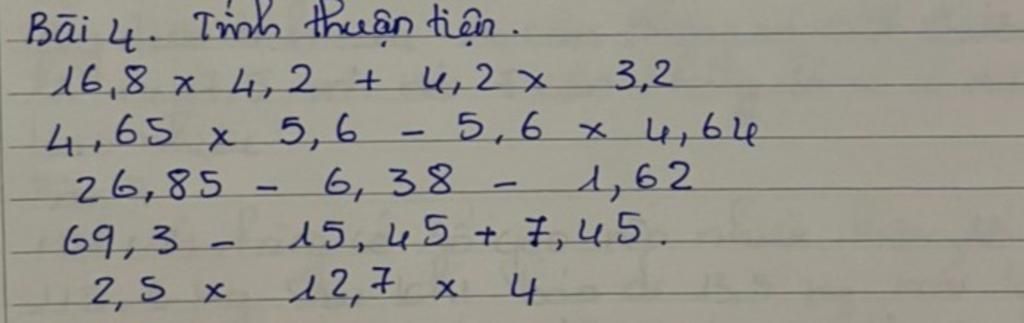 Bài 4. Tính thuận tiện.
16,8 x 4,2 + 4,2 x 3,2
4,65 x 5,6 - 5,6 x 4,64
26,85 - 6,38 - 1,62
69,3 - 15,45 + 7,45.
2,5 x 12,7 x 4